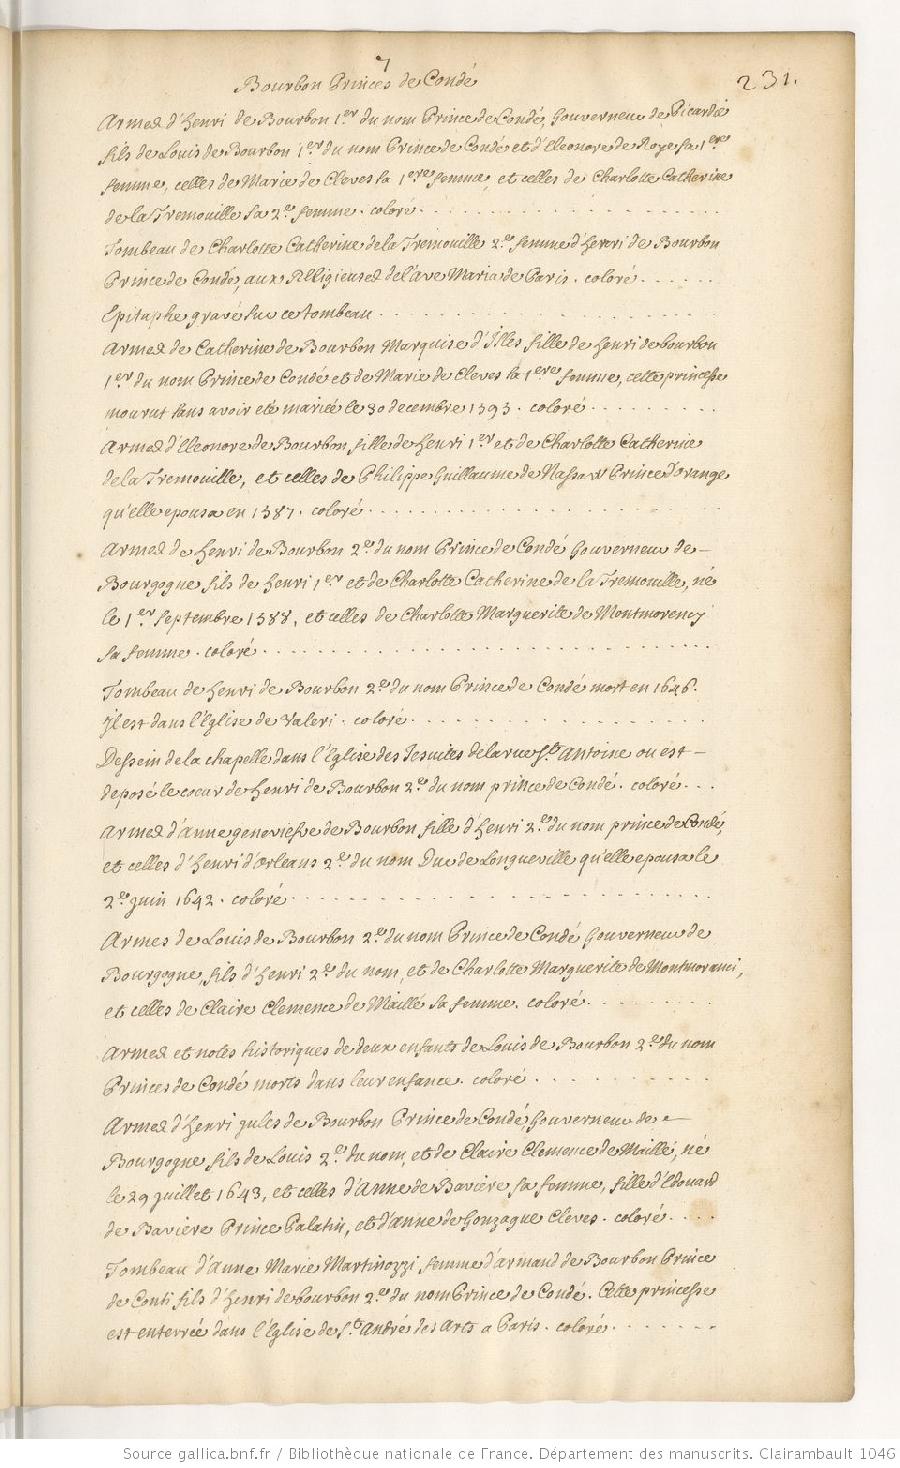 7
Bourbon Princes de Condé
231.
Armes d'Henri de Bourbon 1.er du nom Prince de Condé, Gouverneur de Picardie
fils de Louis de Bourbon 1.er du nom Prince de Condé et d'Eleonore de Roye sa 1.ere
femme, celles de Marie de Cleves sa 1.ere femme, et celles de Charlotte Catherine
de la Tremouille sa 2.e femme. coloré.
Tombeau de Charlotte Catherine de la Tremouille 2.e femme d'Henri de Bourbon
Prince de Condé, aux Religieuses de l'ave Maria de Paris. coloré.
Epitaphe gravé sur ce tombeau
Armes de Catherine de Bourbon Marquise d'Isles fille de Henri de bourbon
1.er du nom Prince de Condé et de Marie de Cleves sa 1.ere femme, cette princesse
mourut sans avoir eté mariée le 30 decembre 1595. coloré.
Armes d'Eleonore de Bourbon, fille de Henri 1.er et de Charlotte Catherine
de la Tremouille, et celles de Philippe Guillaume de Nassaw Prince d'Orange
qu'elle epousa en 1587. coloré
Armes de Henri de Bourbon 2.e du nom Prince de Condé Gouverneur de
Bourgogne, fils de Henri 1.er et de Charlotte Catherine de la Tremouille, né
le 1.er septembre 1588, et celles de Charlotte Marguerite de Montmorency
sa femme. coloré
Tombeau de Henri de Bourbon 2.e du nom Prince de Condé mort en 1646.
Il est dans l'Eglise de Valeri. coloré.
Dessein de la chapelle dans l'Eglise des Jesuites de la rue S.t Antoine ou est
deposé le coeur de Henri de Bourbon 2.e du nom prince de Condé. coloré
Armes d'anne genevieve de Bourbon, fille d'Henri 2.e du nom prince de Condé,
et celles d'Henri d'Orleans 2.e du nom Duc de Longueville qu'elle epousa le
2.e juin 1642. coloré
Armes de Louis de Bourbon 2.e du nom Prince de Condé Gouverneur de
Bourgogne, fils d'Henri 2.e du nom, et de Charlotte Marguerite de Montmoranci,
et celles de Claire Clemence de Maillé sa femme. coloré.
Armes et notes historiques de deux enfants de Louis de Bourbon 2.e du nom
Princes de Condé morts dans leur enfance. coloré.
Armes d'Henri jules de Bourbon Prince de Condé, Gouverneur de
Bourgogne fils de Louis 2.e du nom, et de Claire Clemence de Maillé, né
le 29 juillet 1643, et celles d'Anne de Baviere sa femme, fille d'Edouard
de Baviere Prince Palatin, et d'anne de Gonzague Cleves. coloré.
Tombeau d'Anne Marie Martinozzi femme d'armand de Bourbon Prince
de Conti fils d'Henri de bourbon 2.e du nom Prince de Condé. Cette princesse
est enterrée dans l'Eglise de S.t André des Arts a Paris. coloré.
Source gallica.bnf.fr / Bibliothèque nationale de France. Département des manuscrits. Clairambault 1046